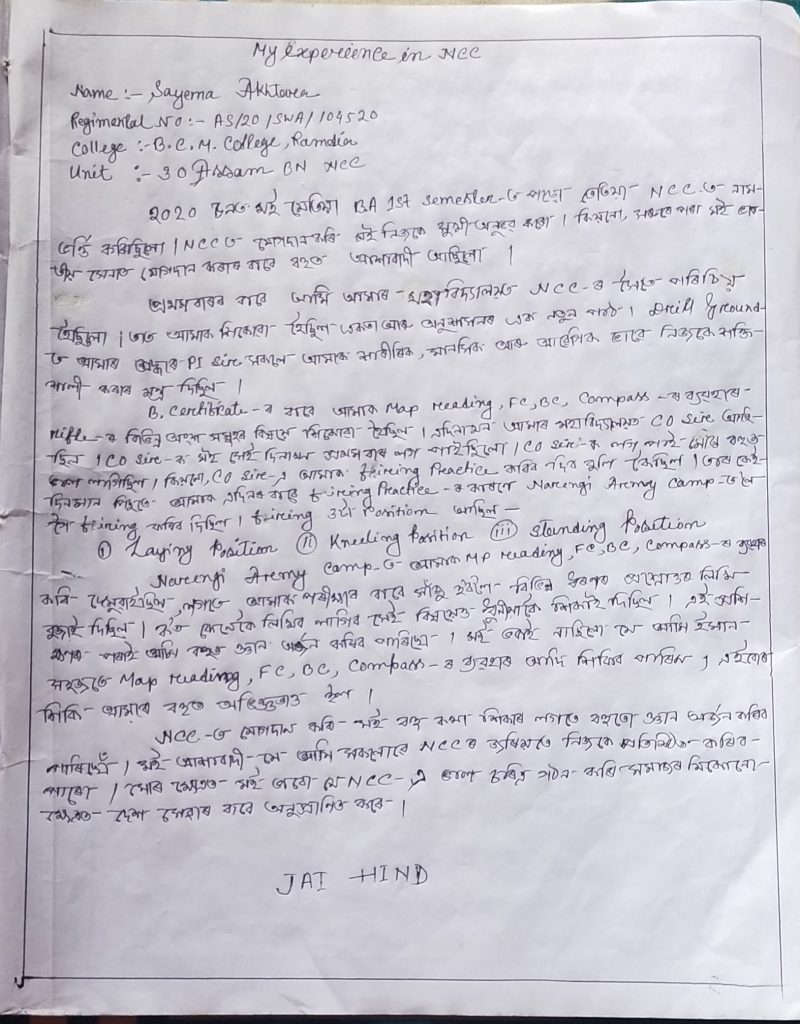 My experience in NCC
Name :- Sayema Akhtara
Regimental No :- AS/20/SWA/104520
College :- B.C.M. College, Ramdia
Unit :- 30 Assam BN NCC
2020 চনত মই যেতিয়া BA 1st semester-ত পঢ়ো তেতিয়া NCC-ত নাম-
ভৰ্ত্তি কৰিছিলো । NCCত যোগদান কৰি মই নিজকে সুখী অনুভৱ কৰো । কিয়নো, সৰুৰে পৰা মই ভাৰ-
তীয় সেনাত যোগদান কৰাৰ বাবে বহুত আশাবাদী আছিলো ।
প্ৰথমবাৰৰ বাবে আমি আমাৰ মহাবিদ্যালয়ত NCC-ৰ সৈতে পৰিচিয়
হৈছিলো । তাত আমাক শিকোৱা হৈছিল একতা আৰু অনুশাসনৰ এক নতুন পাঠ । Drill Ground-
ত আমাৰ PI sir সকলে আমাকে শাৰীৰিক, মানসিক আৰু আৱেগিক ভাবে নিজকে শক্তি-
শালী কৰাৰ মন্ত্ৰ দিছিল ।
B. Certificate-ৰ বাবে আমাক Map reading, FC, BC, Compass-ৰ ব্যৱহাৰ
Rifle-ৰ বিভিন্ন অংশ সমূহৰ বিষয়ে শিকোৱা হৈছিল । এদিনাখন আমাৰ মহাবিদ্যালয়ত CO sir আহি-
ছিল । CO sir-ক মই সেই দিনাখন প্ৰথমবাৰ লগ পাইছিলো । CO sir-ক লগ পাই মোৰ বহুত
ভাল লাগিছিল । কিয়নো, CO sir-এ আমাক firing Practice কৰিব দিব বুলি কৈছিল । তাৰ কেই-
দিনমান পিছতে আমাক এদিনৰ বাবে firing Practice-ৰ কাৰণে Narengi Army Camp-লৈ
গৈ firing কৰিব দিছিল । firing ৩টা Position আছিল —
(i) Laying Position (ii) Kneeling Position (iii) Standing Position
Narengi Army Camp-ত আমাক MP reading, FC, BC, Compass-ৰ ব্যৱহাৰ
কৰি দেখুৱাইছিল, লগতে আমাক পৰীক্ষাৰ বাবে সাজু হ'বলৈ বিভিন্ন ধৰণৰ প্ৰশ্নোত্তৰ লিখি
বুজাই দিছিল । ক'ত কেনেকৈ লিখিব লাগিব সেই বিষয়েও ধুনীয়াকৈ শিকাই দিছিল । এই প্ৰশি-
ক্ষণৰ পৰাই আমি বহুত জ্ঞান অৰ্জন কৰিব পাৰিছো । মই ভবাই নাছিলো যে আমি ইমান
সহজতে Map reading, FC, BC, Compass-ৰ ব্যৱহাৰ আদি শিকিব পাৰিম । এইবোৰ
শিকি আমাৰে বহুত অভিজ্ঞতাও হ'ল ।
NCC-ত যোগদান কৰি মই বহু কথা শিকাৰ লগতে বহুতো জ্ঞান অৰ্জন কৰিব
পাৰিছোঁ । মই আশাবাদী যে আমি সকলোৱে NCCৰ জৰিয়তে নিজকে প্ৰতিষ্ঠিত কৰিব
পাৰো । মোৰ ক্ষেত্ৰত মই ভাবো যে NCC-এ ভাল চৰিত্ৰ গঠন কৰি সমাজৰ যিকোনো
ক্ষেত্ৰত দেশ সেৱাৰ বাবে অনুপ্ৰাণিত কৰে ।
JAI HIND